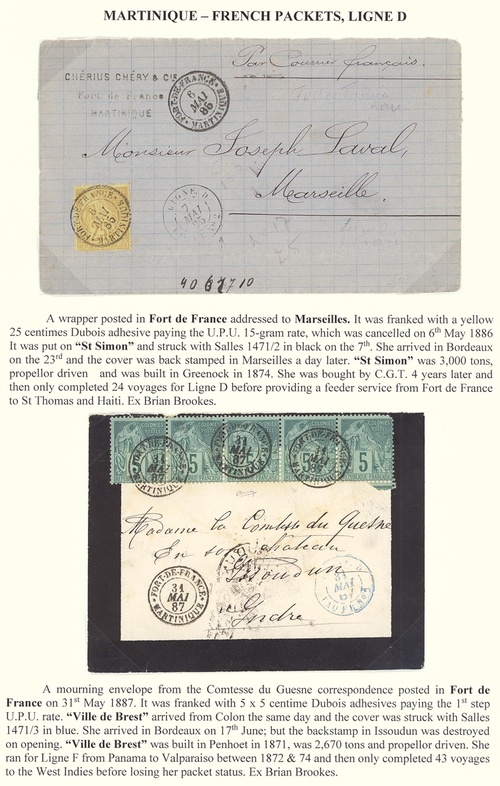 MARTINIQUE – FRENCH PACKETS, LIGNE D
Par Courrier français.
CHÉRIUS CHÉRY & Cie
Fort de France
MARTINIQUE
FORT-DE-FRANCE
6
MAI
86
MARTINIQUE
Monsieur Joseph Laval,
Marseille.
FORT-DE-FRANCE
6
MAI
86
MARTINIQUE
LIGNE D
7
MAI
A wrapper posted in Fort de France addressed to Marseilles. It was franked with a yellow
25 centimes Dubois adhesive paying the U.P.U. 15-gram rate, which was cancelled on 6th May 1886
It was put on “St Simon” and struck with Salles 1471/2 in black on the 7th. She arrived in Bordeaux
on the 23rd and the cover was back stamped in Marseilles a day later. “St Simon” was 3,000 tons,
propellor driven and was built in Greenock in 1874. She was bought by C.G.T. 4 years later and
then only completed 24 voyages for Ligne D before providing a feeder service from Fort de France
to St Thomas and Haiti. Ex Brian Brookes.
FORT-DE-FRANCE
31
MAI
87
MARTINIQUE
5
31
MAI
87
MARTINIQUE
5
FORT-DE-FRANCE
31
MAI
87
MARTINIQUE
5
Madame la Comtesse du Quesne
En son château
Issoudun
Indre
FORT-DE-FRANCE
31
MAI
87
MARTINIQUE
31
MAI
87
A mourning envelope from the Comtesse du Guesne correspondence posted in Fort de
France on 31st May 1887. It was franked with 5 x 5 centime Dubois adhesives paying the 1st step
U.P.U. rate. “Ville de Brest” arrived from Colon the same day and the cover was struck with Salles
1471/3 in blue. She arrived in Bordeaux on 17th June; but the backstamp in Issoudun was destroyed
on opening. “Ville de Brest” was built in Penhoet in 1871, was 2,670 tons and propellor driven. She
ran for Ligne F from Panama to Valparaiso between 1872 & 74 and then only completed 43 voyages
to the West Indies before losing her packet status. Ex Brian Brookes.